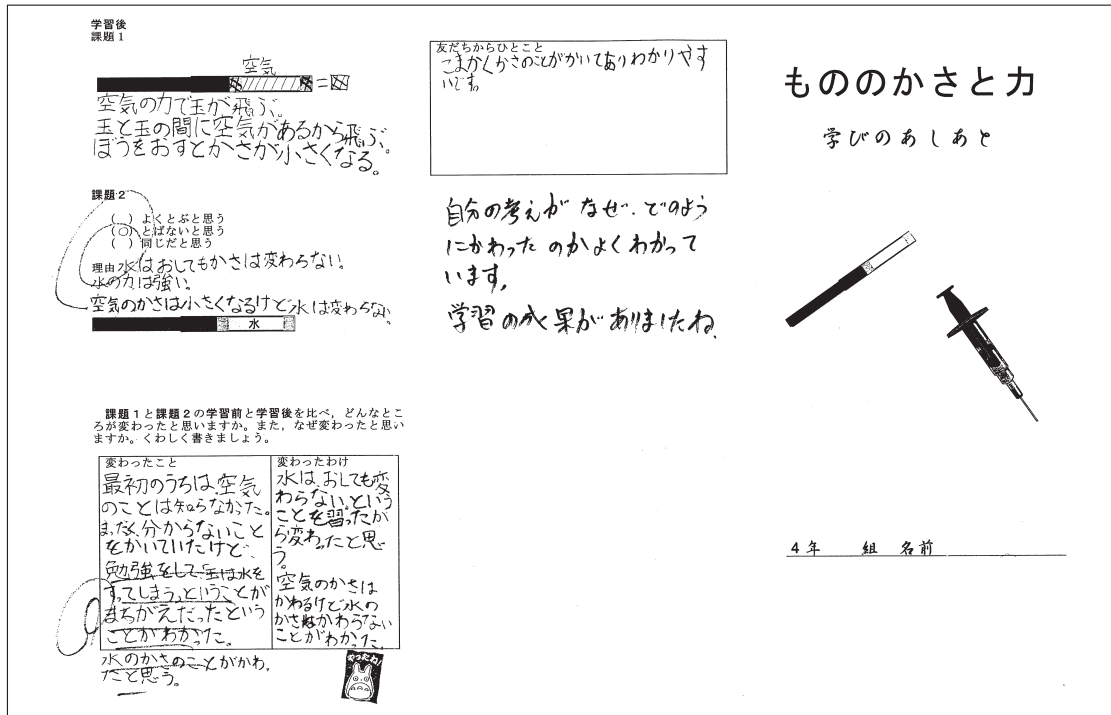 学習後
課題1
空気
=
空気の力で玉が飛ぶ。
玉と玉の間に空気があるから飛ぶ。
ぼうをおすとかさが小さくなる。
課題2
( ) よくとぶと思う
(○) とばないと思う
( ) 同じだと思う
理由 水はおしてもかさは変わらない。
水の力は強い。
空気のかさは小さくなるけど水は変わらない
水
課題1と課題2の学習前と学習後を比べ，どんなとこ
ろが変わったと思いますか。また，なぜ変わったと思い
ますか。くわしく書きましょう。
変わったこと
最初のうちは、空気
のことは知らなかった。
まったく分からないこと
をかいていたけど、
勉強をして「玉は水を
すってしまう」ということが
まちがえだったという
ことがわかった。
水のかさのことがかわっ
たと思う。
変わったわけ
水は、おしても変
わらない。という
ことを習ったか
ら変わったと思
う。
空気のかさは
かわるけど水の
かさはかわらない
ことがわかった。
やったね!
友だちからひとこと
こまかくかさのことがかいてありわかりやす
いです。
自分の考えがなぜ、どのよう
にかわったのかよくわかって
います。
学習の成果がありましたね。
もののかさと力
学びのあしあと
4年 組 名前